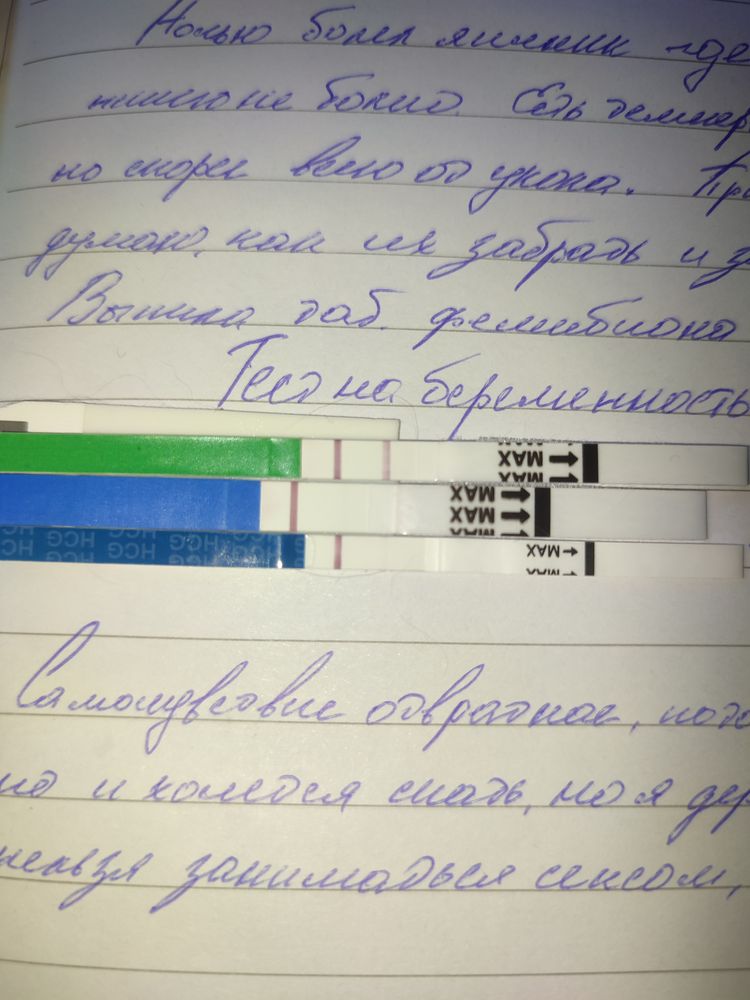 Ночью болел яичник где
ничего не болит. Есть темпер
но скорее всего от укола. Пр
думаю, как их забрать и з
Выпила таб. фемибиона
Тест на беременность
MAX MAX MAX
MAX MAX MAX
HCG HCG HCG HCG HCG MAX MAX
Самочувствие отвратное, пот
но и хочется спать, но я дер
нельзя заниматься сексом,